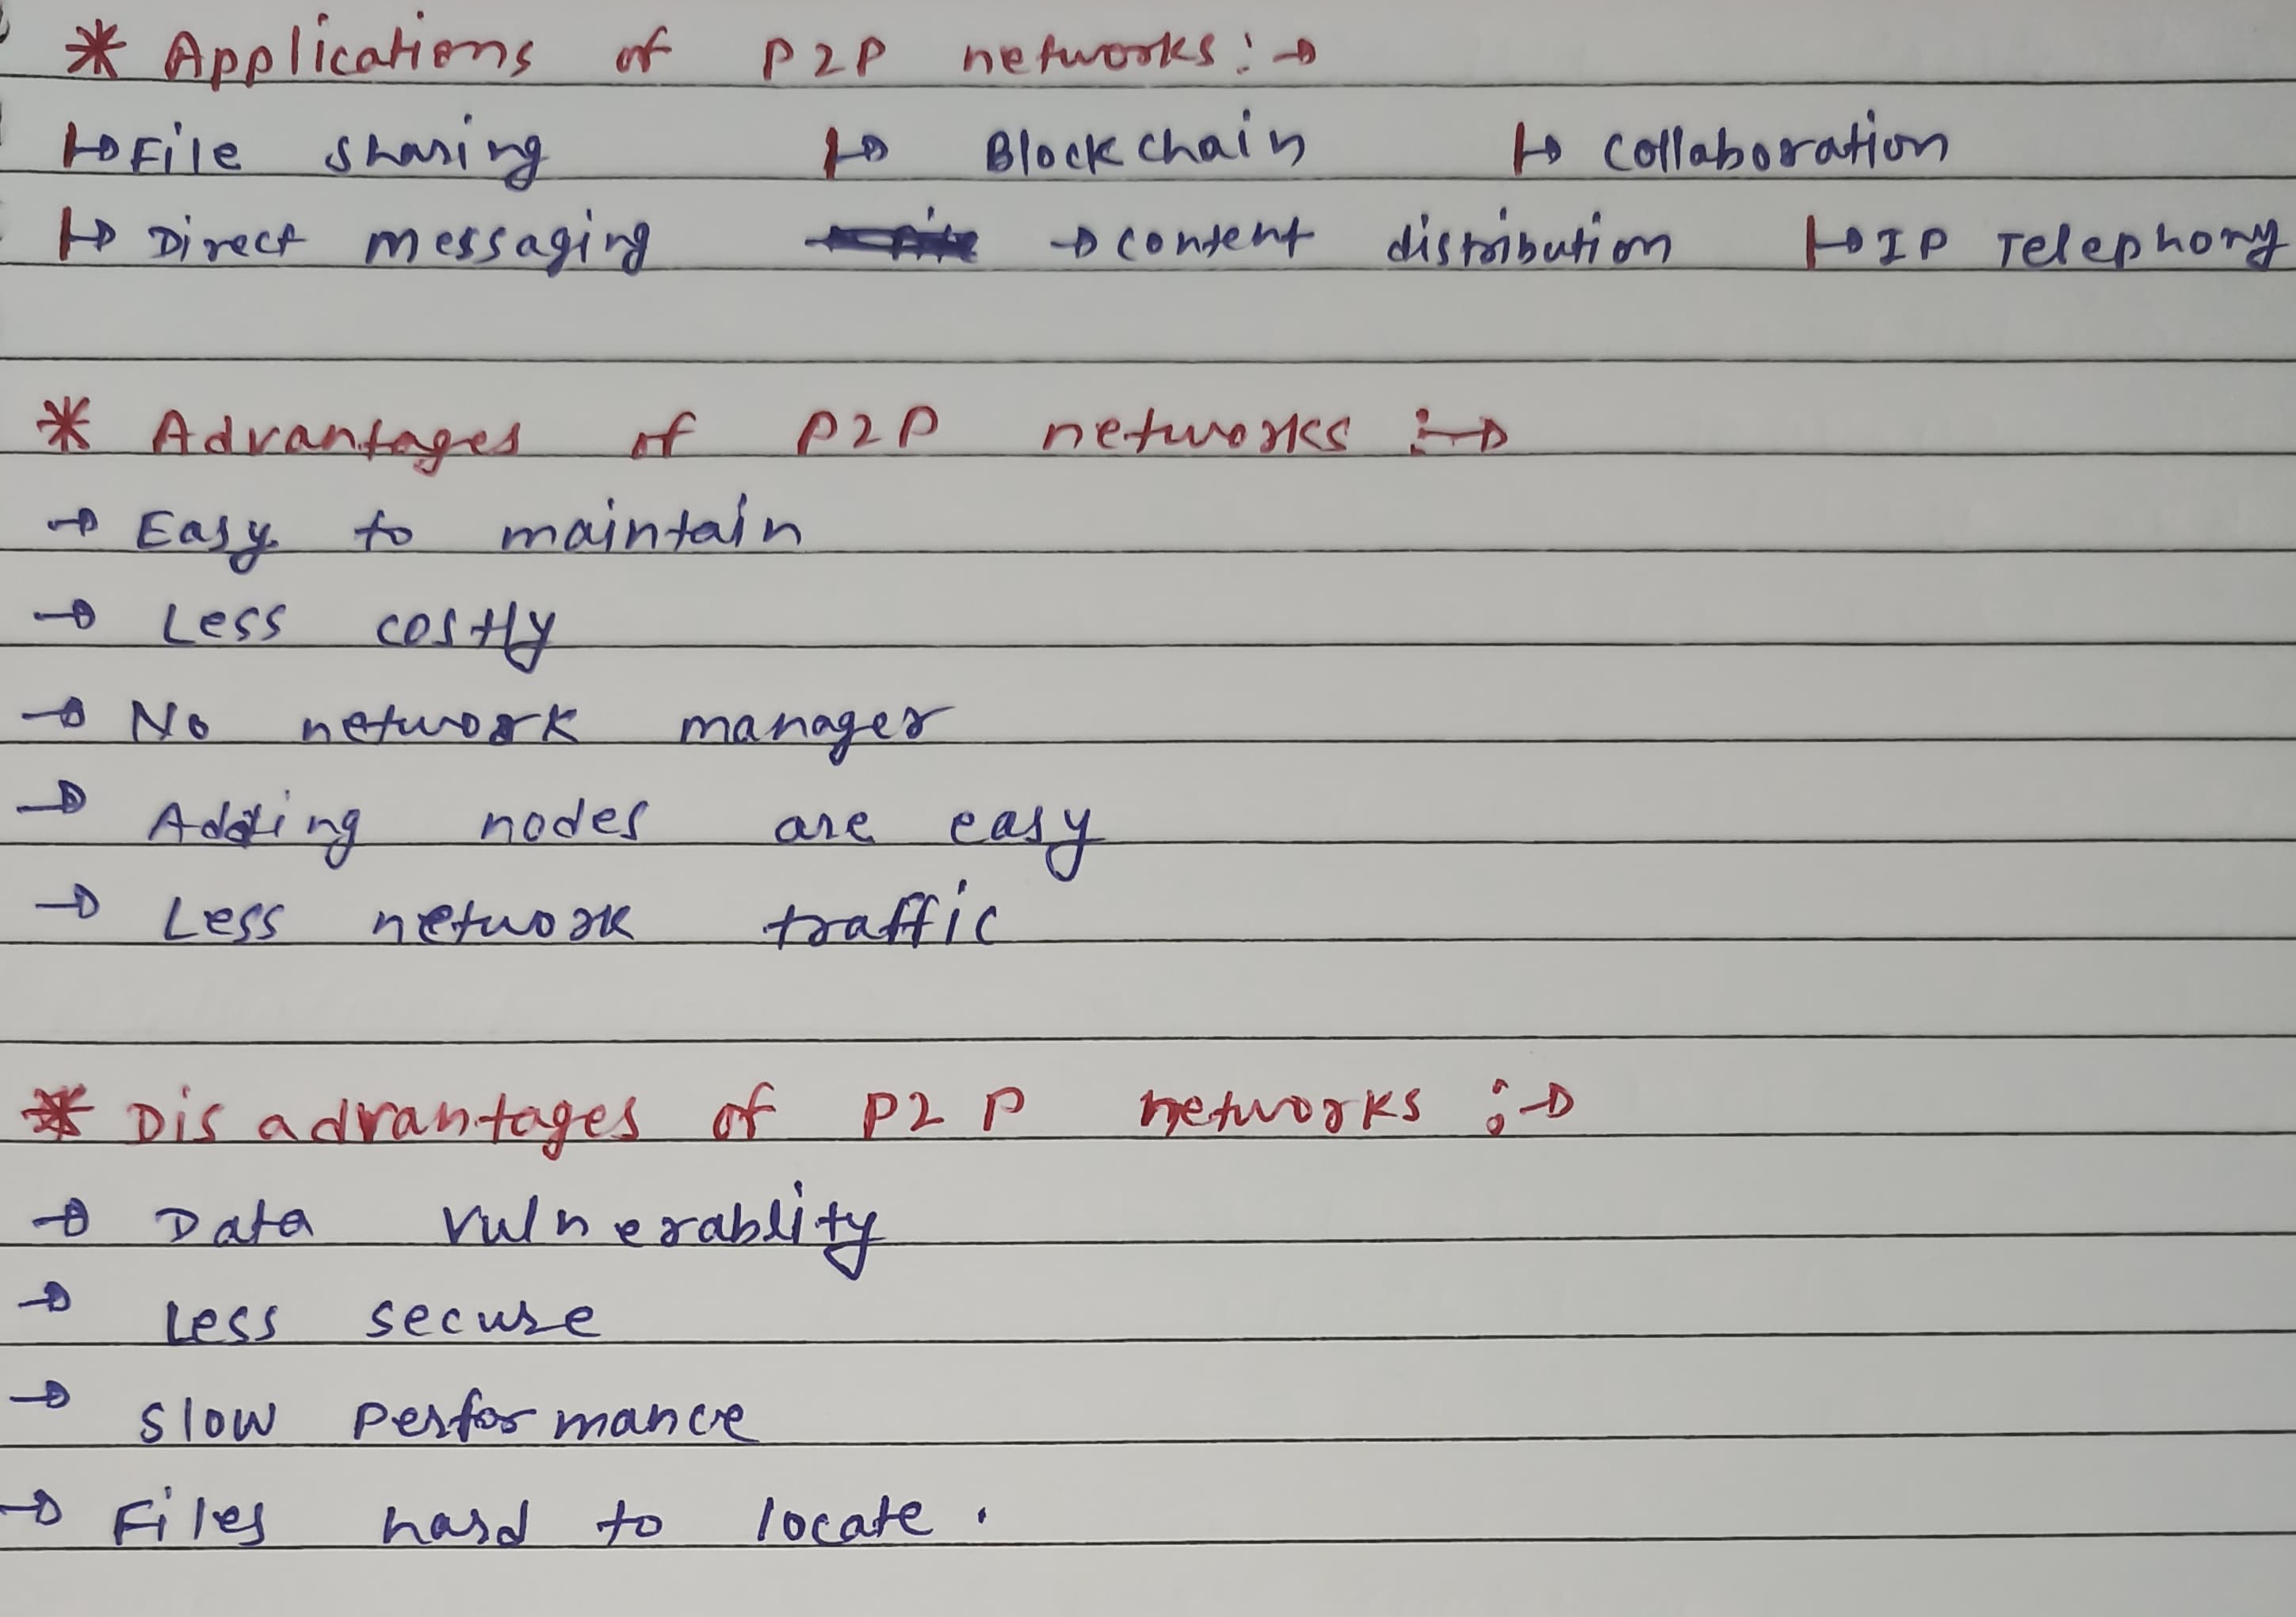 * Applications of P2P networks :→
→ File sharing → Blockchain → Collaboration
→ Direct messaging → content distribution → IP Telephony
* Advantages of P2P networks :→
→ Easy to maintain
→ Less costly
→ No network manager
→ Adding nodes are easy
→ Less network traffic
* Disadvantages of P2P networks :→
→ Data vulnerablity
→ Less secure
→ Slow Performance
→ Files hard to locate .